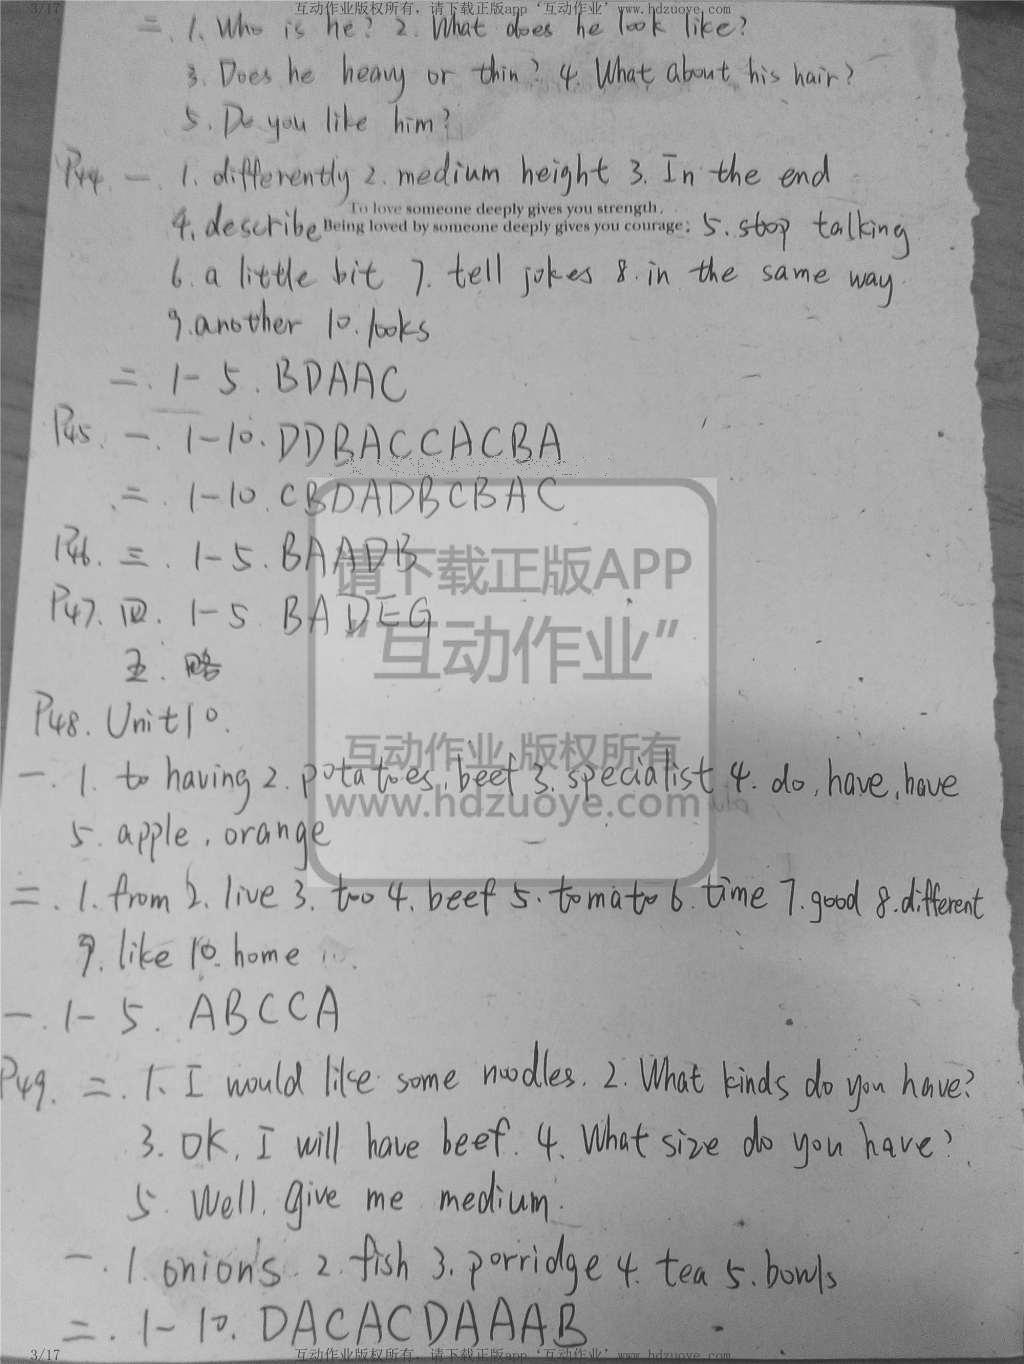 3/17 互动作业版权所有，请下载正版app‘互动作业’www.hdzuoye.com
二. 1. Who is he? 2. What does he look like?
3. Does he heavy or thin? 4. What about his hair?
5. Do you like him?
P44. 一. 1. differently 2. medium height 3. In the end
To love someone deeply gives you strength,
Being loved by someone deeply gives you courage;
4. describe 5. stop talking
6. a little bit 7. tell jokes 8. in the same way
9. another 10. looks
二. 1-5. BDAAC
P45. 一. 1-10. DDBACCACBA
二. 1-10. CBDADBCBAC
P46. 三. 1-5. BAADB
请下载正版APP
P47. 四. 1-5 BADEG
“互动作业”
五. 略
P48. Unit10.
互动作业,版权所有
一. 1. to having 2. potatoes, beef 3. specialist 4. do, have, have
www.hdzuoye.com
5. apple, orange
二. 1. from 2. live 3. too 4. beef 5. tomato 6. time 7. good 8. different
9. like 10. home
一. 1-5. ABCCA
P49. 二. 1. I would like some noodles. 2. What kinds do you have?
3. OK, I will have beef. 4. What size do you have?
5. Well, give me medium.
一. 1. onions. 2. fish 3. porridge 4. tea 5. bowls
二. 1-10. DACACDAAAB
3/17 互动作业版权所有，请下载正版app‘互动作业’www.hdzuoye.com